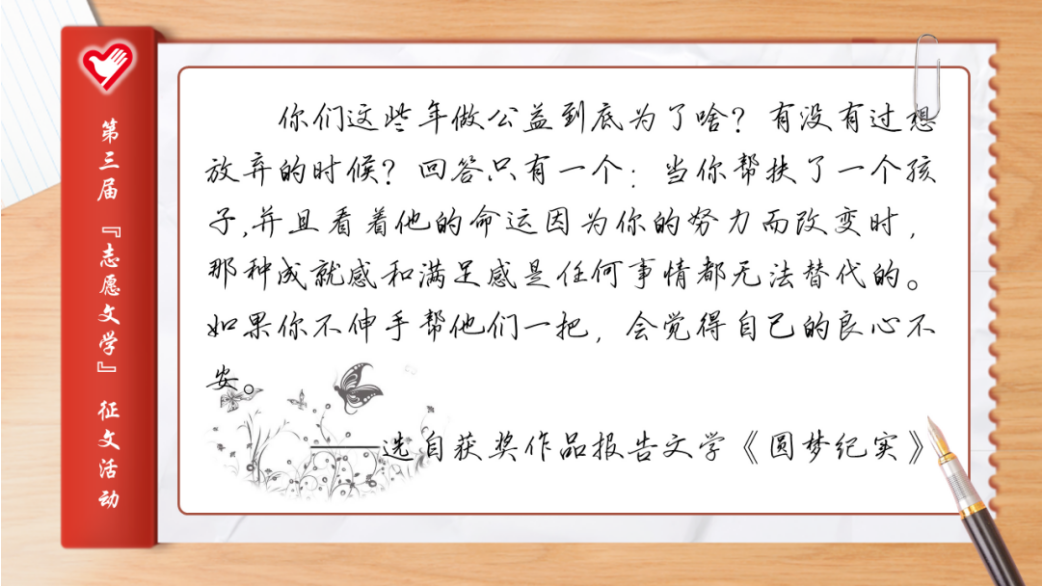 第三届『志愿文学』征文活动
你们这些年做公益到底为了啥？有没有过想
放弃的时候？回答只有一个：当你帮扶了一个孩
子,并且看着他的命运因为你的努力而改变时，
那种成就感和满足感是任何事情都无法替代的。
如果你不伸手帮他们一把，会觉得自己的良心不
安。
——选自获奖作品报告文学《圆梦纪实》